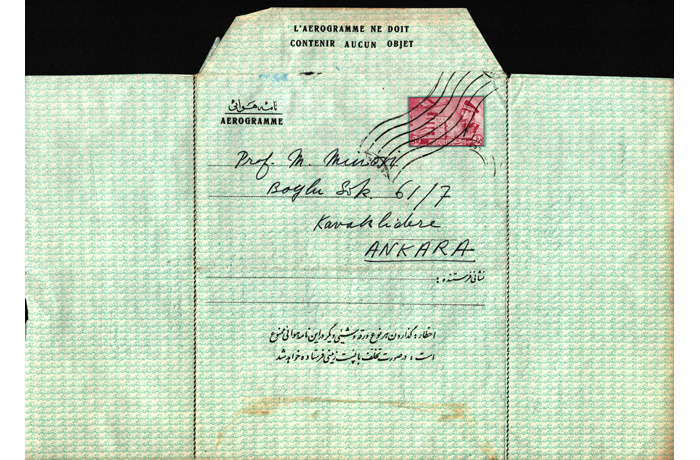 L'AEROGRAMME NE DOIT
CONTENIR AUCUN OBJET
نامه هوائی
AEROGRAMME
Prof. M. Minovi
Boylu Sok. 61/7
Kavaklidere
ANKARA
نشانی فرستنده :
اخطار : گذاردن هر نوع ورقه و شیئی دیگر در این نامه هوائی ممنوع
است ؛ در صورت تخلف با پست زمینی فرستاده خواهد شد